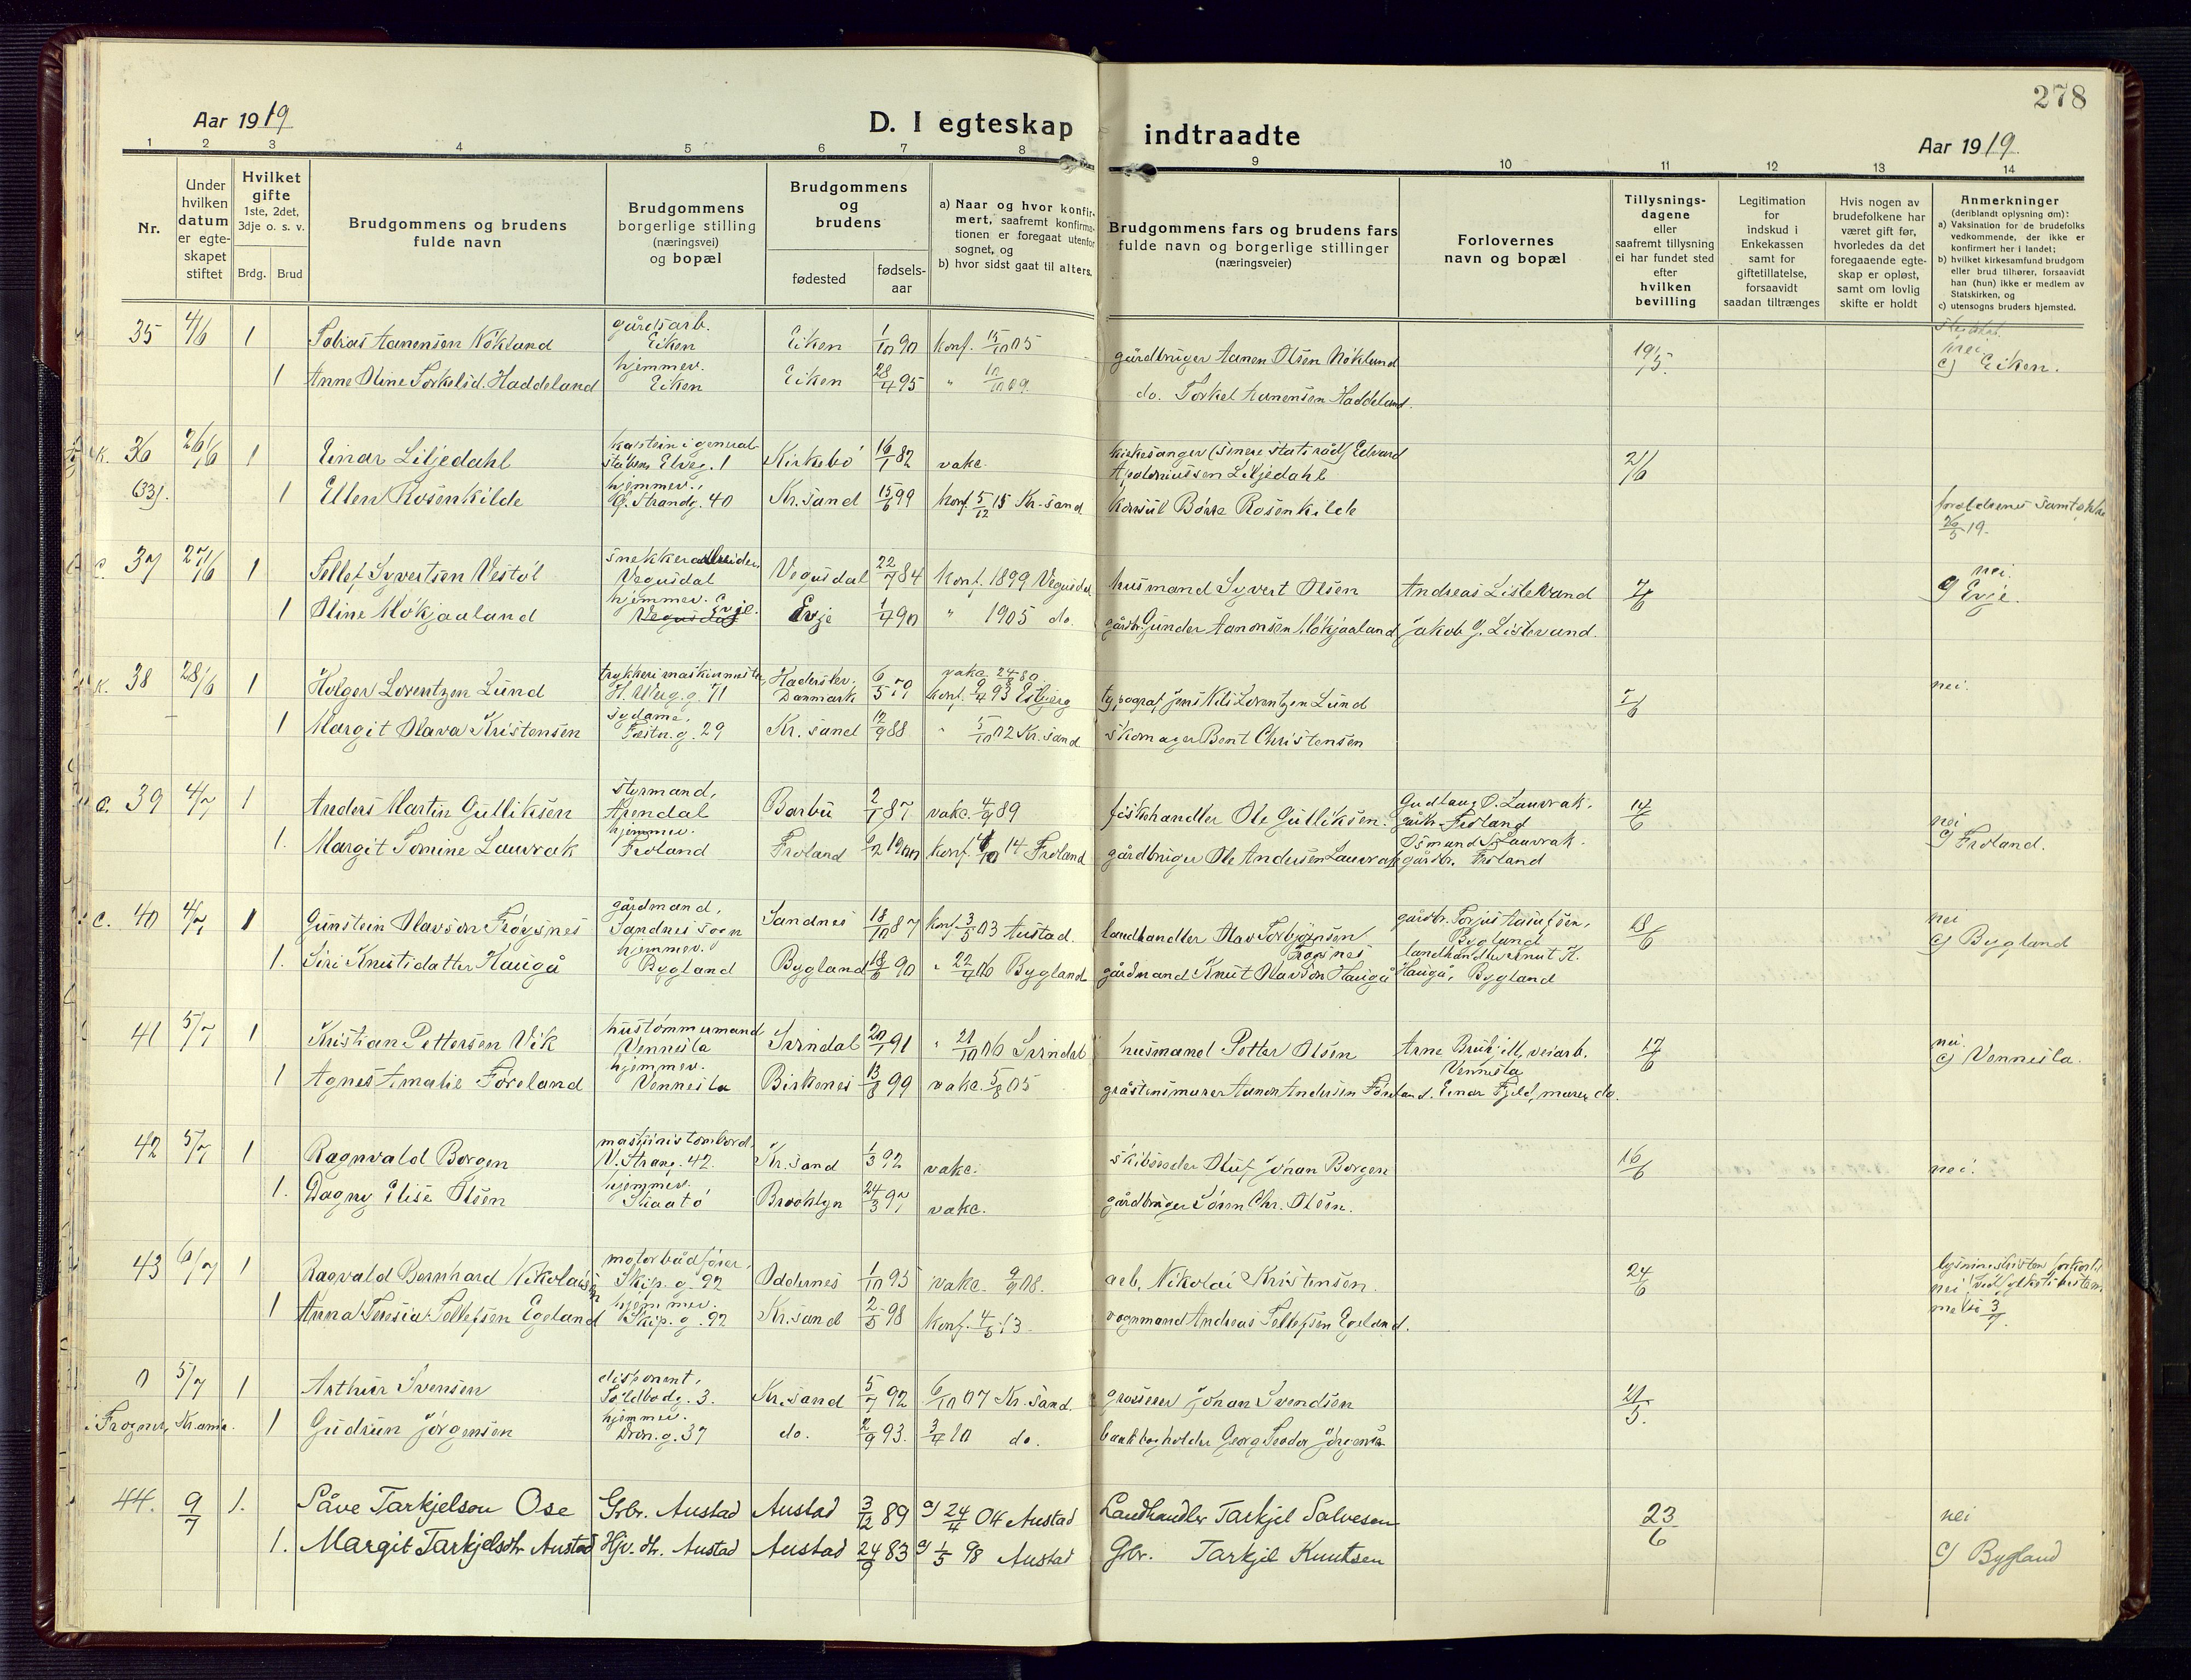 278
Aar 1919
D. I egteskap indtraadte
Aar 1919.
1 2 3 4 5 6 7 8 9 10 11 12 13 14
Nr.
Under hvilken datum er egteskapet stiftet
Hvilket gifte
1ste, 2det, 3dje o. s. v.
Brdg. Brud
Brudgommens og brudens fulde navn
Brudgommens borgerlige stilling (næringsvei) og bopæl
Brudgommens og brudens
fødested
fødselsaar
a) Naar og hvor konfirmert, saafremt konfirmationen er foregaat utenfor sognet, og
b) hvor sidst gaat til alters.
Brudgommens fars og brudens fars fulde navn og borgerlige stillinger (næringsveier)
Forlovernes navn og bopæl
Tillysningsdagene eller saafremt tillysning ei har fundet sted efter hvilken bevilling
Legitimation for indskud i Enkekassen samt for giftetillatelse, forsaavidt saadan tiltrænges
Hvis nogen av brudefolkene har været gift før, hvorledes da det foregaaende egteskap er opløst, samt om lovlig skifte er holdt
Anmerkninger
(deriblandt oplysning om):
a) Vaksination for de brudefolks vedkommende, der ikke er konfirmert her i landet;
b) hvilket kirkesamfund brudgom eller brud tilhører, forsaavidt han (hun) ikke er medlem av Statskirken, og
c) utensogns bruders hjemsted.
35 4/6 1 Tobias Aanensen Nökland gårdsarb. Eiken Eiken 1/10 90 konf. 15/10 05 gårdbruger Aanen Olsen Nökland 19/5. nei
1 Anne Oline Torkelsd. Haddeland hjemmev. Eiken Eiken 28/4 95 " 10/10 09. do. Torkel Aanensen Haddeland. c) Eiken.
K. 36 26/6 1 Einar Liljedahl kaptein i generalstaben Elveg. 1 Kirkebö 16/1 82 vakc. kirkesanger (senere statsråd) Edvard Apolonius­sen Liljedahl 2/6
(33). 1 Ellen Rosenkilde hjemmev., Ø. Strandg. 40 Kr. sand 15/6 99 konf. 5/12 15 Kr. sand konsul Börre Rosenkilde forældrenes samtykke 26/5 19.
C. 37 27/6 1 Tellef Syvertsen Vestöl snekkerarbeider, Vegusdal Vegusdal 22/7 84 konf. 1899 Vegusdal husmand Syvert Olsen Andreas Listevand 7/6 nei.
1 Oline Mökjaaland hjemmev. Evje. Evje 1/4 90 " 1905 do. gårdbr. Gunder Aanonsen Mökjaaland Jakob G. Listevand. c) Evje.
K. 38 28/6 1 Holger Lorentzen Lund trykkerimaskinmester, H. Werg. g. 71 Haderslev. Danmark 6/5 79 vakc. 24/8 80. konf. 9/4 93 Esbjerg typograf Jens Nils Lorentzen Lund 5/6 nei.
1 Margit Olava Kristensen sydame, Festn. g. 29 Kr. sand 12/9 88 " 5/10 02 Kr. sand skomager Bent Christensen
C. 39 4/7 1 Anders Martin Gulliksen styrmand, Arendal Barbu 2/1 87 vakc. 4/9 89 fiskehandler Ole Gulliksen. Gudlaug O. Lauvrak. gårdbr. Froland 14/6 nei
1. Margit Tomine Lauvrak hjemmev. Froland Froland 6/2 1900 konf. 4/10 14 Froland gårdbruger Ole Andersen Lauvrak Osmund S. Lauvrak. gårdbr. Froland c) Froland.
C. 40 4/7 1 Gunstein Olavson Fröysnes gårdmand, Sandnes sogn Sandnes 18/10 87 konf. 3/5 03 Austad. landhandler Olav Torbjörnsen Froysnes gårdbr. Torjus Aasulfsen, Bygland 18/6 nei
1. Siri Knutsdatter Haugå hjemmev. Bygland Bygland 18/6 90 " 22/4 06 Bygland gårdmand Knut Olavson Haugå landhandler Knut K. Haugå, Bygland c) Bygland
41 5/7 1 Kristian Pettersen Vik hustömmermand Vennesla Svindal 20/1 91 " 21/10 06 Svindal husmand Petter Olsen Arne Bruhjell, veiarb. Vennesla 17/6 nei.
1 Agnes Amalie Föreland hjemmev. Vennesla Birkenes 13/8 99 vakc. 5/8 05 gråstensmurer Aanon Andersen Föreland. Einar Fjeld, murer do. c) Vennesla.
42 5/7 1 Ragnvald Borgen maskinist ombord. V. Strang. 42. Kr. sand 1/3 92 vakc. skibsreder Oluf Johan Borgen 16/6 nei.
1. Dagny Elise Olsen hjemmev. Skaatö Brooklyn 24/3 97 vakc. gårdbruger Sören Chr. Olsen.
43 6/7 1 Ragvald Bernhard Nikolaisen motorbådförer, Skip. g. 92 Oddernes 1/10 95 vakc. 9/9 08. arb. Nikolai Kristensen. 24/6
1 Anna Teresia Tellefsen Egeland hjemmev. Skip. g. 92 Kr. sand 2/5 98 konf. 4/5 13. vognmand Andreas Tellefsen Egeland.
0 5/7 1 Arthur Svensen disponent, Toldbodg. 3. Kr. sand 5/7 92 6/10 07 Kr. sand. grosserer Johan Svendsen 21/5.
i Frogner, Kr.ania. 1 Gudrun Jörgensen hjemmev. Dron. g. 37 do. 2/9 93. 3/4 10 do. bankbogholder Georg Teodor Jörgensen
44. 9/7 1. Såve Tarkjelson Ose Grbr. Austad Austad 3/12 89 a) 24/4 04 Austad Landhandler Tarkjel Salvesen 23/6 nei
1. Margit Tarkjelsdtr Austad Hjv. dt. Austad Austad 24/9 83 a) 1/5 98 Austad Gbr. Tarkjel Knutsen c) Bygland